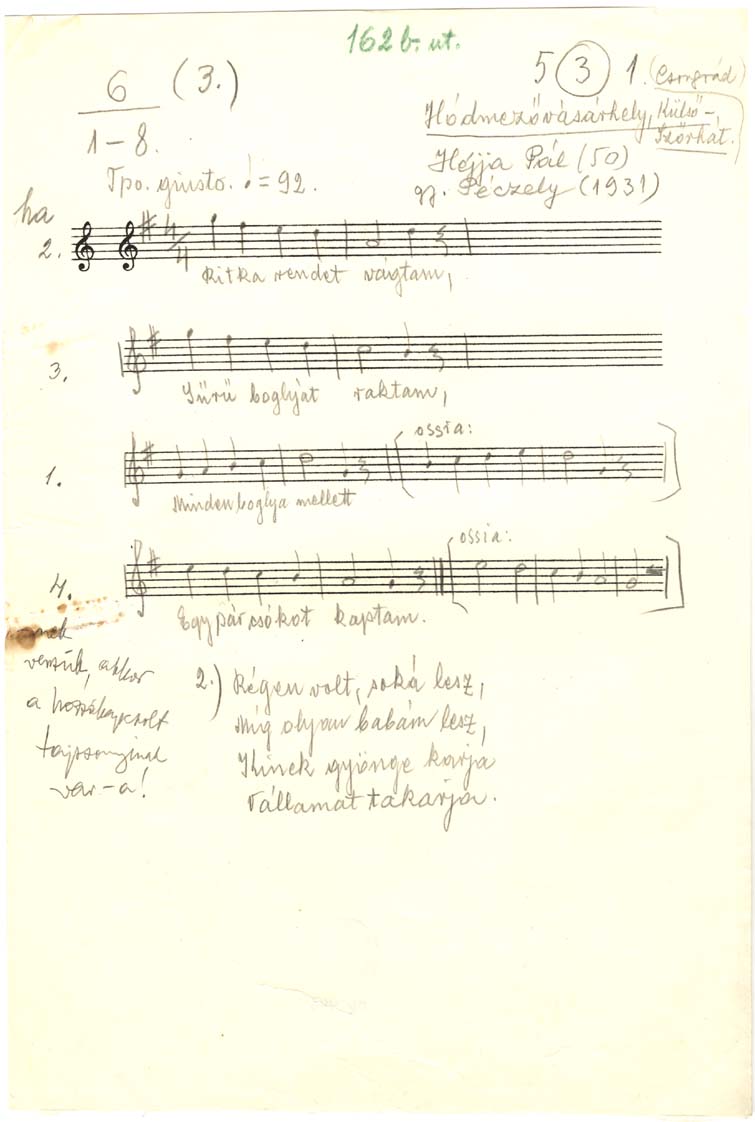 162 b. ut.
6 (3.) 5 (3) 1. (Csongrád)
1-8. Hódmezővásárhely, Külső-
Szőrhát.
Héjja Pál (50)
Tpo. giusto. ♩= 92. gy. Péczely (1931)
ha
2. 4/4
Ritka rendet vágtam,
3.
Sűrű boglyát raktam,
ossia:
1.
Minden boglya mellett
ossia:
4.
Egy pár csókot kaptam.
vesszük, akkor
2.) Régen volt, soká lesz,
a hozzákapcsolt
Míg olyan babám lesz,
Kinek gyönge karja
var-a!
Vállamat takarja.